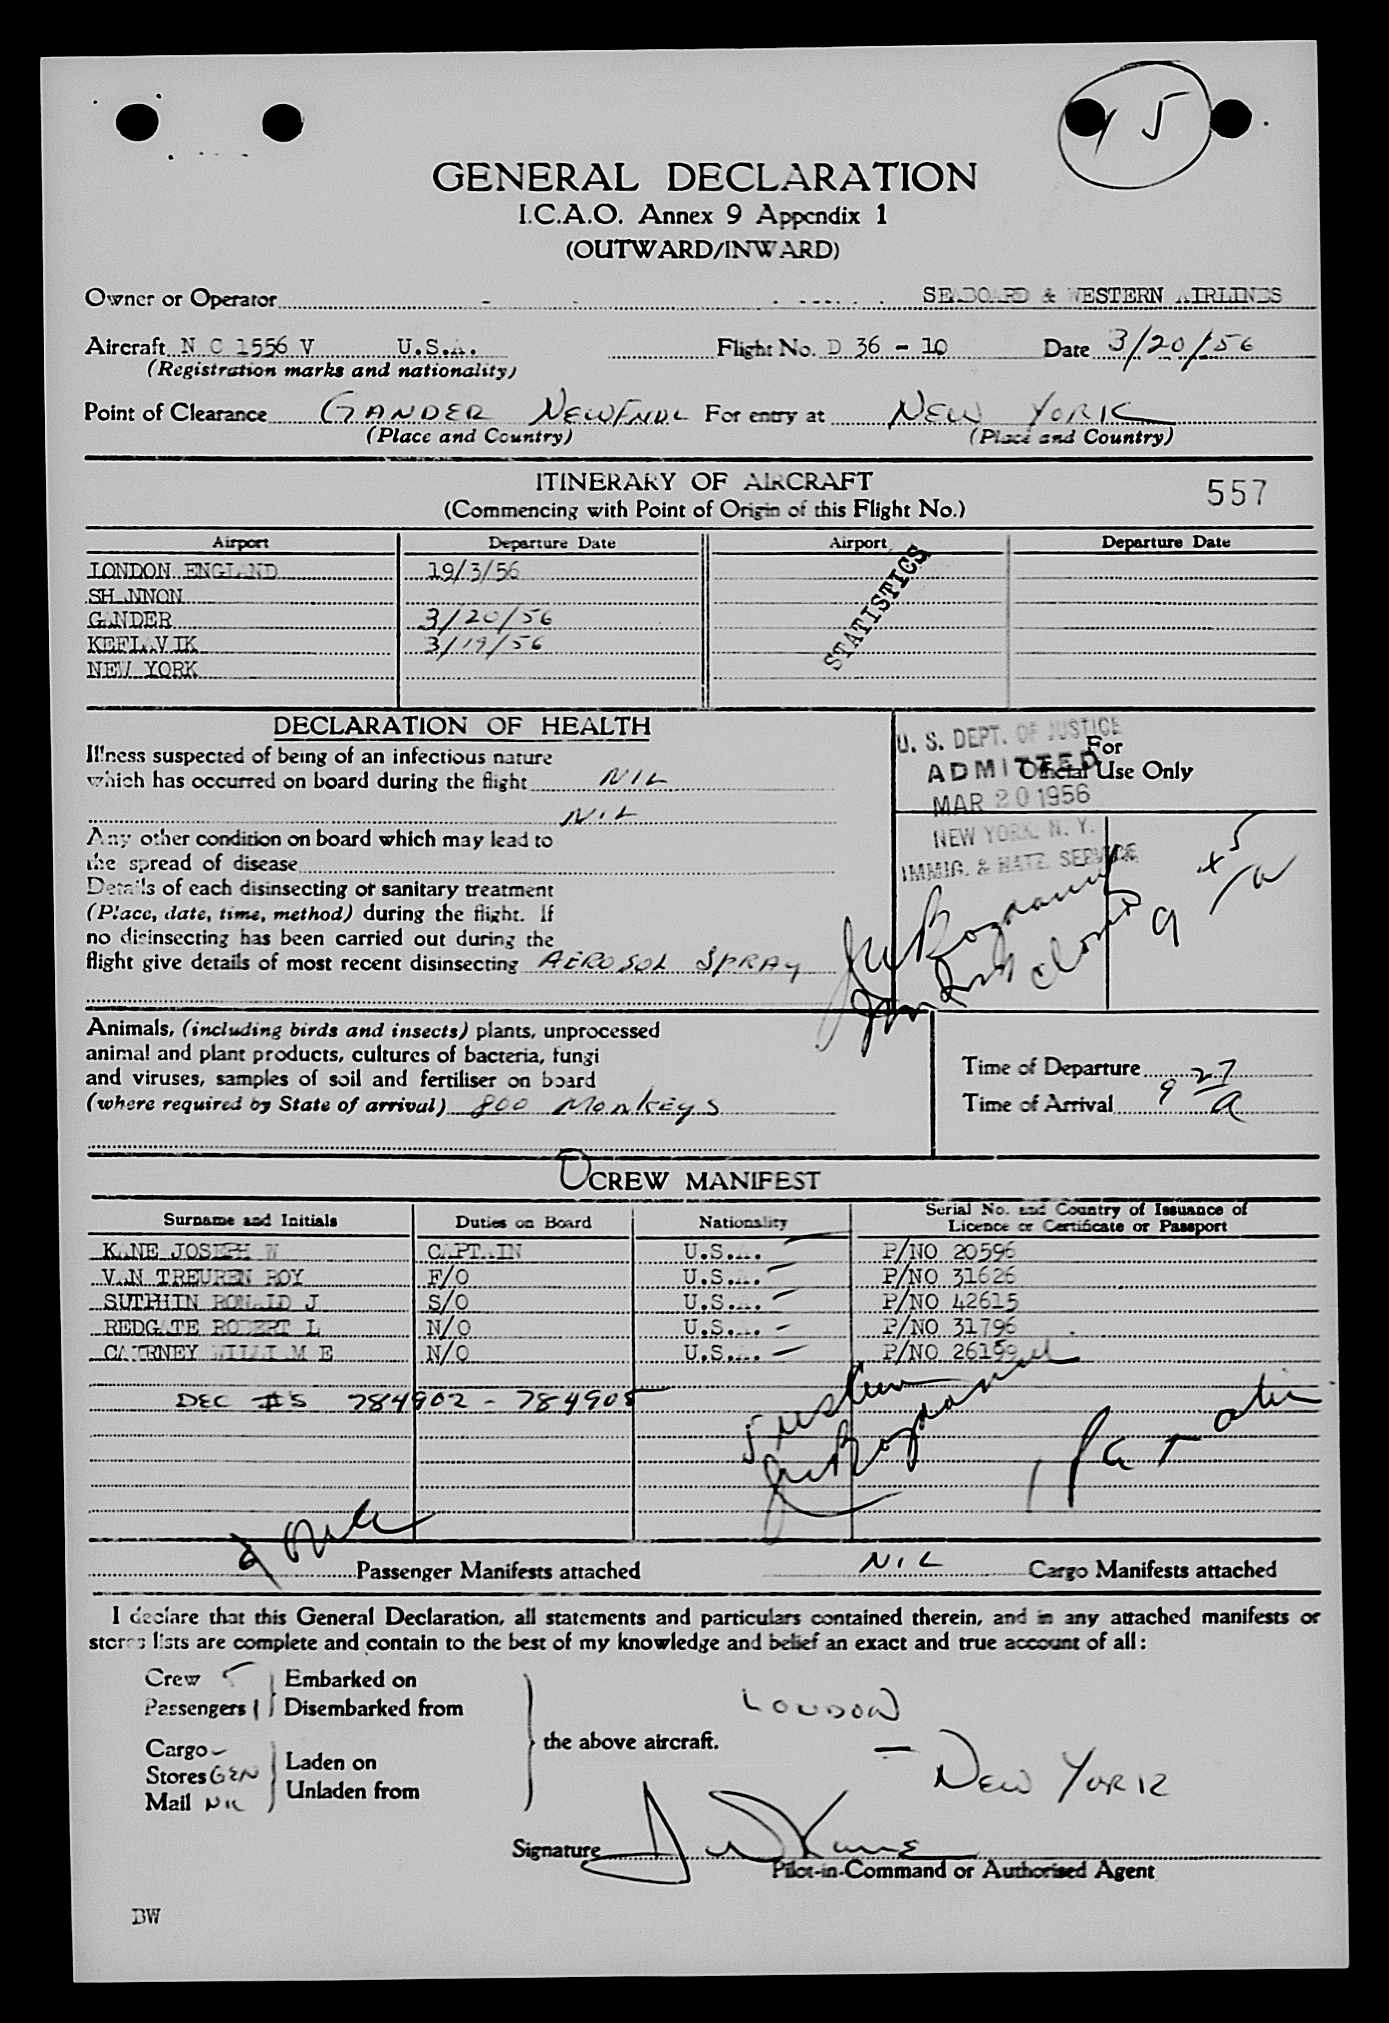 5
GENERAL DECLARATION
I.C.A.O. Annex 9 Appendix 1
(OUTWARD/INWARD)
Owner or Operator SEABOARD & WESTERN AIRLINES
Aircraft N C 1556 V U.S.A. Flight No. D 36 - 10 Date 3/20/56
(Registration marks and nationality)
Point of Clearance GANDER NEWFNDL For entry at NEW YORK
(Place and Country) (Place and Country)
ITINERARY OF AIRCRAFT
(Commencing with Point of Origin of this Flight No.)
557
Airport Departure Date Airport Departure Date
LONDON ENGLAND 19/3/56
SHANNON
GANDER 3/20/56
KEFLAVIK 3/19/56
NEW YORK
STATISTICS
DECLARATION OF HEALTH
Illness suspected of being of an infectious nature
which has occurred on board during the flight NIL
NIL
Any other condition on board which may lead to
the spread of disease
Details of each disinsecting or sanitary treatment
(Place, date, time, method) during the flight. If
no disinsecting has been carried out during the
flight give details of most recent disinsecting AEROSOL SPRAY
For
Official Use Only
U. S. DEPT. OF JUSTICE
ADMITTED
MAR 20 1956
NEW YORK, N. Y.
IMMIG. & NATZ. SERVICE
Animals, (including birds and insects) plants, unprocessed
animal and plant products, cultures of bacteria, fungi
and viruses, samples of soil and fertiliser on board
(where required by State of arrival) 800 Monkeys
Time of Departure
Time of Arrival 9 27 a
CREW MANIFEST
Surname and Initials Duties on Board Nationality Serial No. and Country of Issuance of
Licence or Certificate or Passport
KANE JOSEPH W CAPTAIN U.S.A. P/NO 20596
VAN TREUREN ROY F/O U.S.A. P/NO 31626
SUTPHIN RONALD J S/O U.S.A. P/NO 42615
REDGATE ROBERT L N/O U.S.A. P/NO 31796
CAIRNEY WILLIAM E N/O U.S.A. P/NO 26159
DEC #S 784902 - 784905
Passenger Manifests attached NIL Cargo Manifests attached
I declare that this General Declaration, all statements and particulars contained therein, and in any attached manifests or
stores lists are complete and contain to the best of my knowledge and belief an exact and true account of all:
Crew 5 Embarked on
Passengers 1 Disembarked from
the above aircraft.
LONDON
Cargo - Laden on
Stores GEN Unladen from
Mail NIL
- NEW YORK
Signature J W Kane
Pilot-in-Command or Authorised Agent
BW